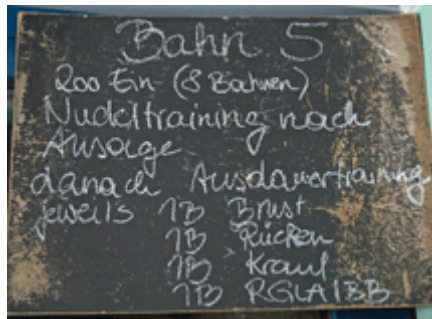 Bahn 5
200 Ein (8 Bahnen)
Nudeltraining nach
Ansage
danach Ausdauertraining
jeweils 1B Brust
1B Rücken
1B Kraul
1B